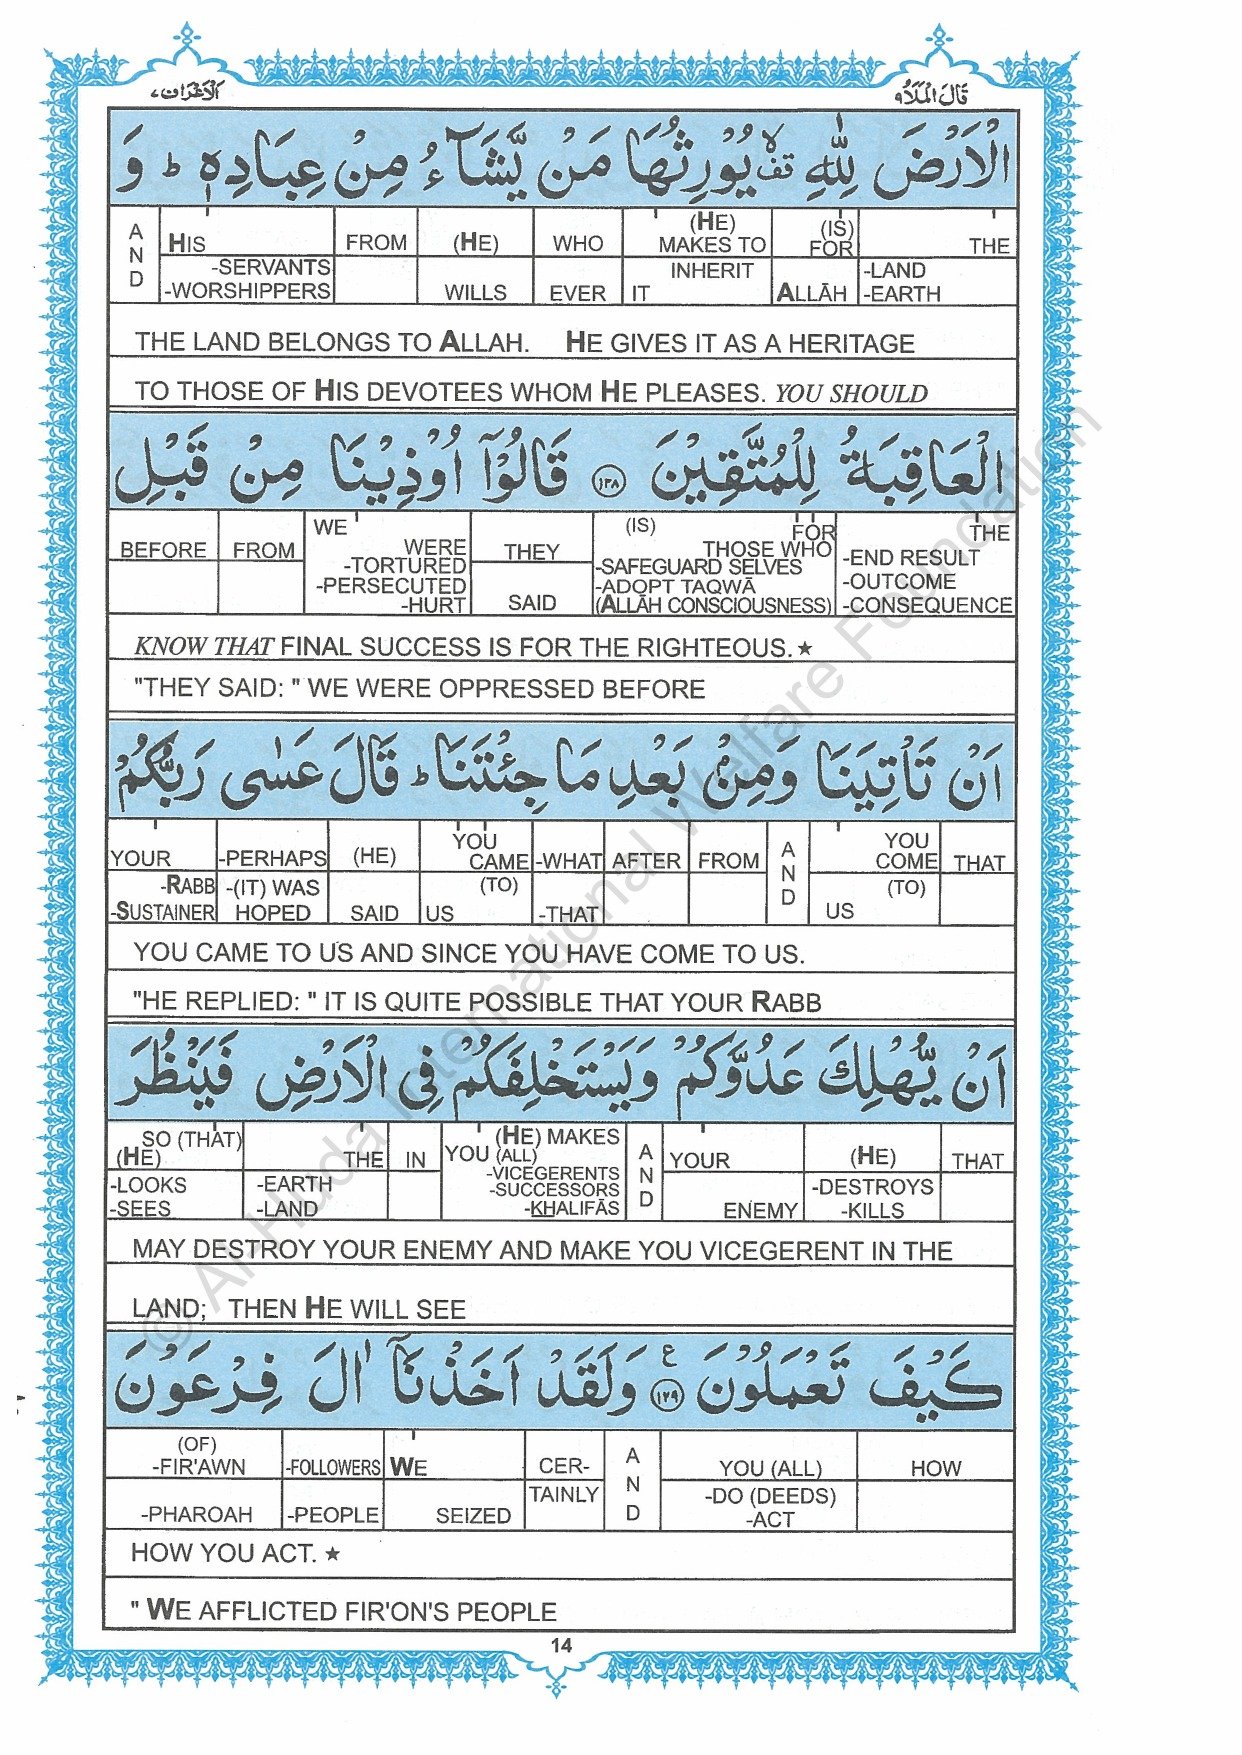 قَالَ الْمَلَأُ ٩
الْأَعْرَاف ٧
الْاَرْضَ لِلّٰهِ ۙ۫ قف يُوْرِثُهَا مَنْ يَّشَآءُ مِنْ عِبَادِهٖ ؕ وَ
THE -LAND -EARTH | (IS) FOR ALLĀH | (HE) MAKES TO INHERIT IT | WHO EVER | (HE) WILLS | FROM | HIS -SERVANTS -WORSHIPPERS | AND
THE LAND BELONGS TO ALLAH. HE GIVES IT AS A HERITAGE
TO THOSE OF HIS DEVOTEES WHOM HE PLEASES. YOU SHOULD
الْعَاقِبَةُ لِلْمُتَّقِيْنَ ١٢٨ قَالُوْٓا اُوْذِيْنَا مِنْ قَبْلِ
THE -END RESULT -OUTCOME -CONSEQUENCE | (IS) FOR THOSE WHO -SAFEGUARD SELVES -ADOPT TAQWĀ (ALLĀH CONSCIOUSNESS) | THEY SAID | WE WERE -TORTURED -PERSECUTED -HURT | FROM | BEFORE
KNOW THAT FINAL SUCCESS IS FOR THE RIGHTEOUS. ★
"THEY SAID: " WE WERE OPPRESSED BEFORE
اَنْ تَاْتِيَنَا وَمِنْۢ بَعْدِ مَا جِئْتَنَا ؕ قَالَ عَسٰى رَبُّكُمْ
THAT | YOU COME (TO) US | AND | FROM | AFTER | -WHAT -THAT | YOU CAME (TO) US | (HE) SAID | -PERHAPS -(IT) WAS HOPED | YOUR -RABB -SUSTAINER
YOU CAME TO US AND SINCE YOU HAVE COME TO US.
"HE REPLIED: " IT IS QUITE POSSIBLE THAT YOUR RABB
اَنْ يُّهْلِكَ عَدُوَّكُمْ وَيَسْتَخْلِفَكُمْ فِى الْاَرْضِ فَيَنْظُرَ
THAT | (HE) -DESTROYS -KILLS | YOUR ENEMY | AND | (HE) MAKES YOU (ALL) -VICEGERENTS -SUCCESSORS -KHALIFĀS | IN | THE -EARTH -LAND | SO (THAT) (HE) -LOOKS -SEES
MAY DESTROY YOUR ENEMY AND MAKE YOU VICEGERENT IN THE
LAND; THEN HE WILL SEE
كَيْفَ تَعْمَلُوْنَ ١٢٩ ع وَلَقَدْ اَخَذْنَآ اٰلَ فِرْعَوْنَ
HOW | YOU (ALL) -DO (DEEDS) -ACT | AND | CER- TAINLY | WE SEIZED | -FOLLOWERS -PEOPLE | (OF) -FIR'AWN -PHAROAH
HOW YOU ACT. ★
" WE AFFLICTED FIR'ON'S PEOPLE
14
© Al-Huda International Welfare Foundation